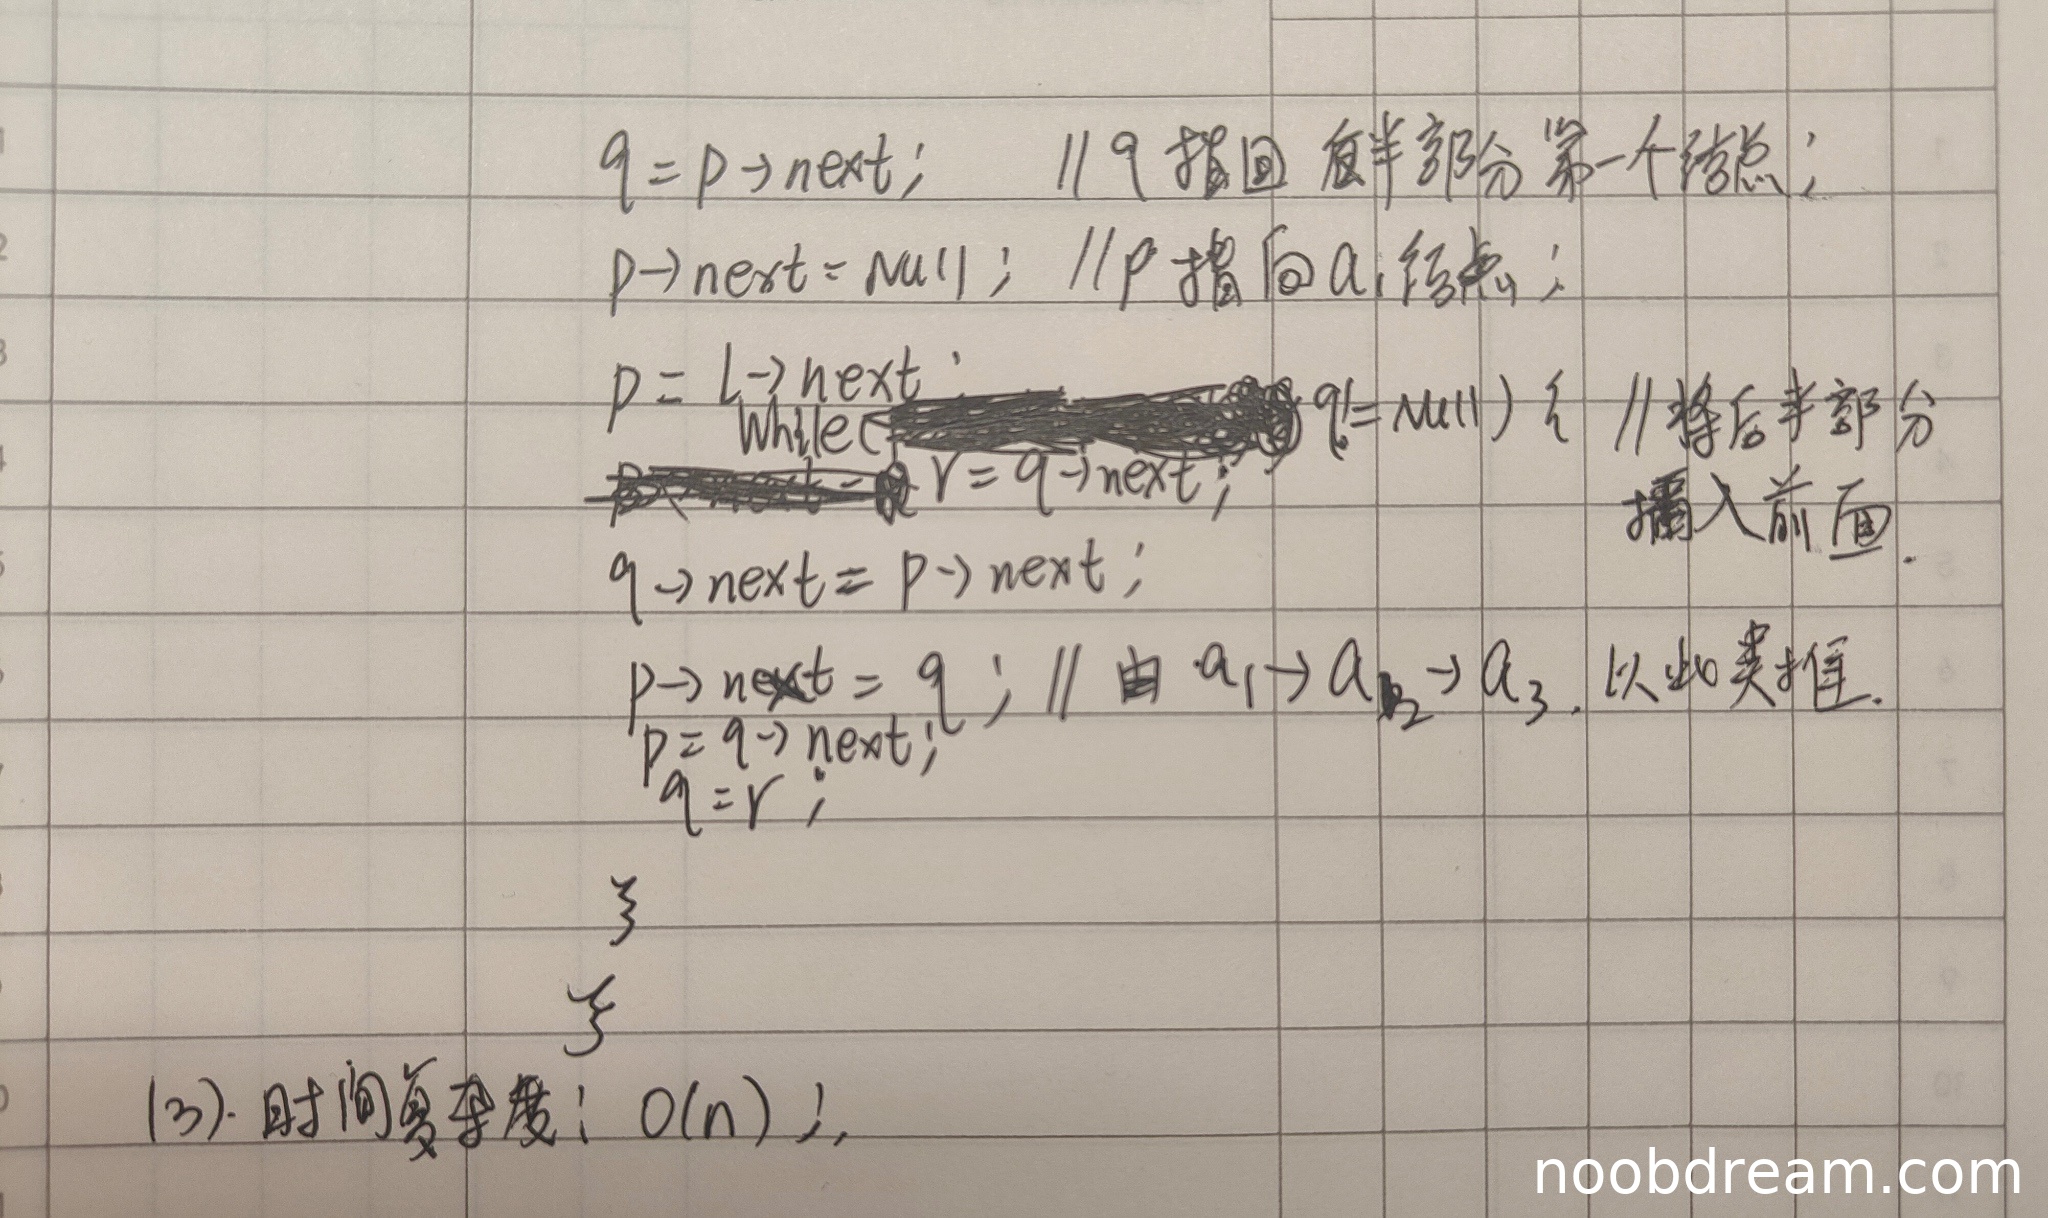 q = p→next; //q 指回 后半部分第一个结点;
p→next = Null; //p 指向 a1 结点;
p = L→next;
while( q!=Null) { //将后半部分
r = q→next; 插入前面.
q→next = p→next;
p→next = q; //由 a1→a2→a3. 以此类推.
p = q→next;
q = r;
}
}
(3). 时间复杂度: O(n);.
noobdream.com